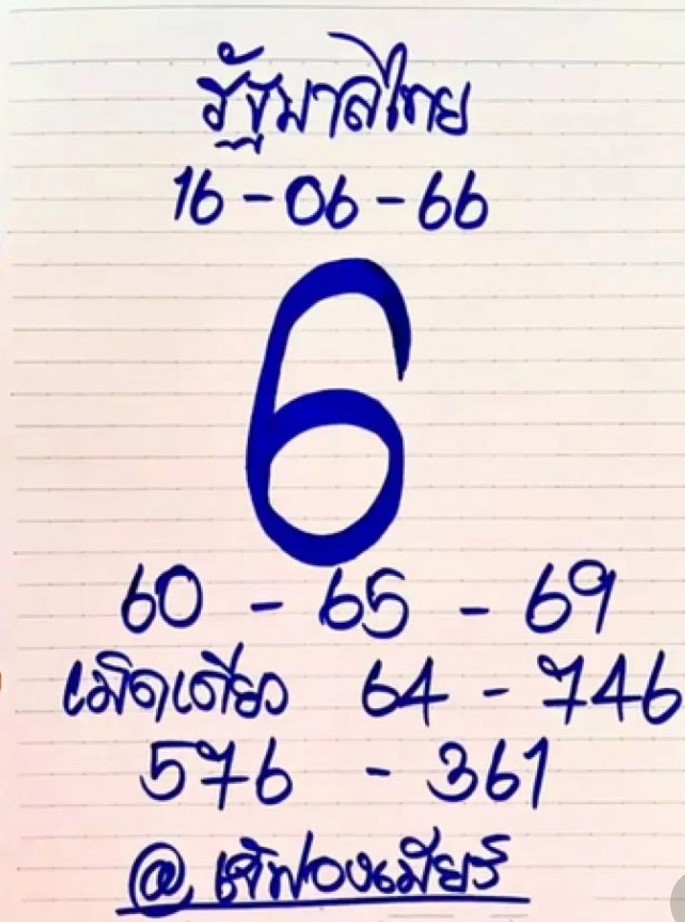 รัฐบาลไทย
16-06-66
6
60 - 65 - 69
เม็ดเดียว 64 - 746
576 - 361
@ เจ๊ฟองเบียร์